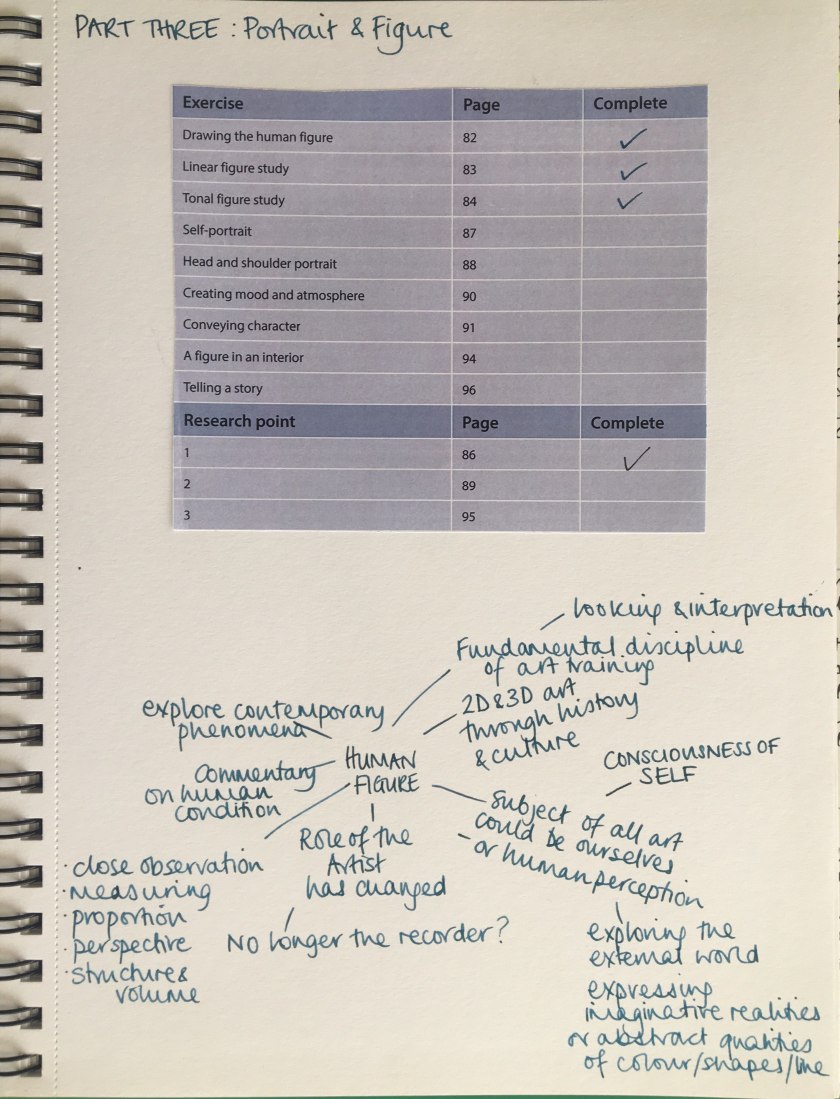 PART THREE : Portrait & Figure
Exercise Page Complete
Drawing the human figure 82 ✓
Linear figure study 83 ✓
Tonal figure study 84 ✓
Self-portrait 87
Head and shoulder portrait 88
Creating mood and atmosphere 90
Conveying character 91
A figure in an interior 94
Telling a story 96
Research point Page Complete
1 86 ✓
2 89
3 95
looking & interpretation
Fundamental discipline
of art training
2D & 3D art
through history
& culture
explore contemporary
phenomena
HUMAN
FIGURE
Commentary
on human
condition
CONSCIOUSNESS OF
SELF
Subject of all art
could be ourselves
- or human perception
Role of the
Artist
has changed
No longer the recorder?
· close observation
· measuring
· proportion
· perspective
· structure &
volume
exploring the
external world
expressing
imaginative realities
or abstract qualities
of colour/shapes/line